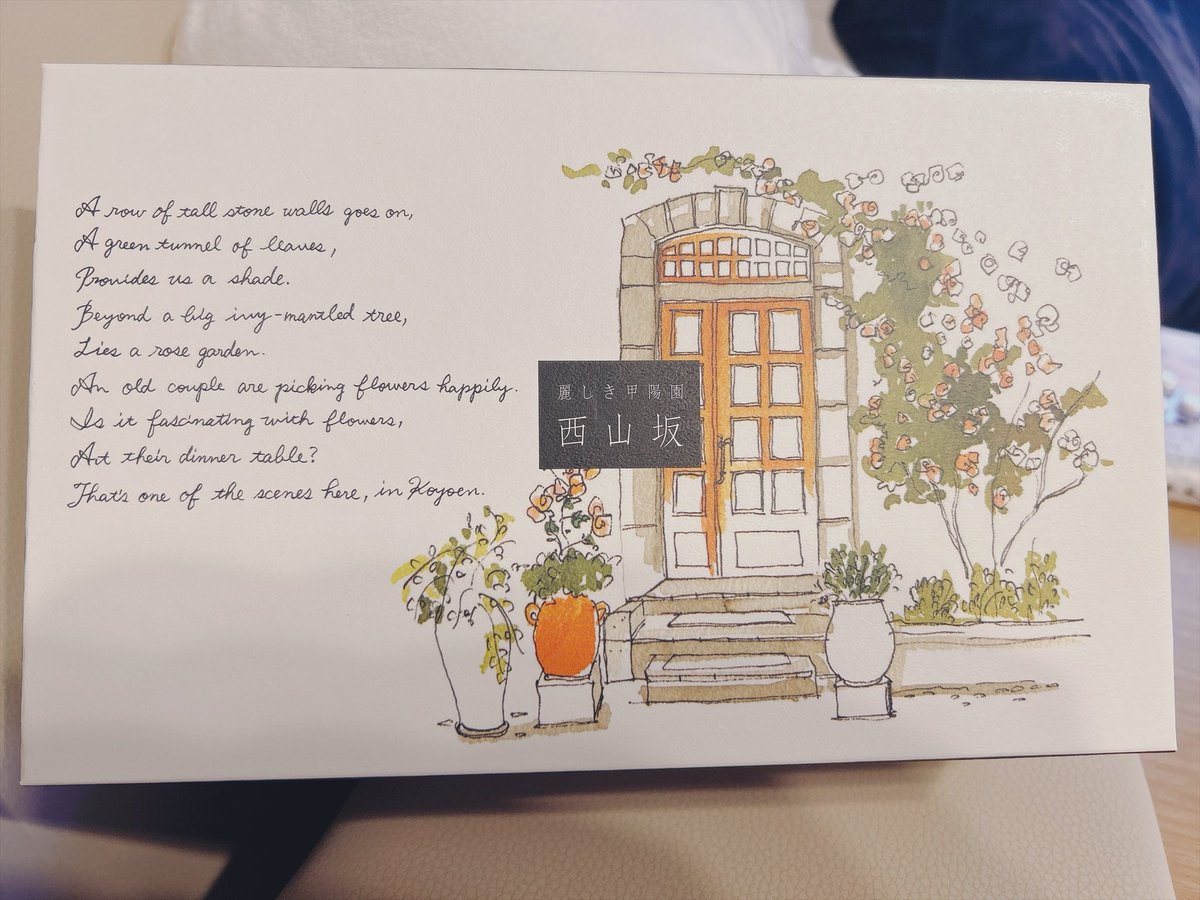 A row of tall stone walls goes on,
A green tunnel of leaves,
Provides us a shade.
Beyond a big ivy-mantled tree,
Lies a rose garden.
An old couple are picking flowers happily.
Is it fascinating with flowers,
At their dinner table?
That's one of the scenes here, in Koyoen.
麗しき甲陽園
西山坂